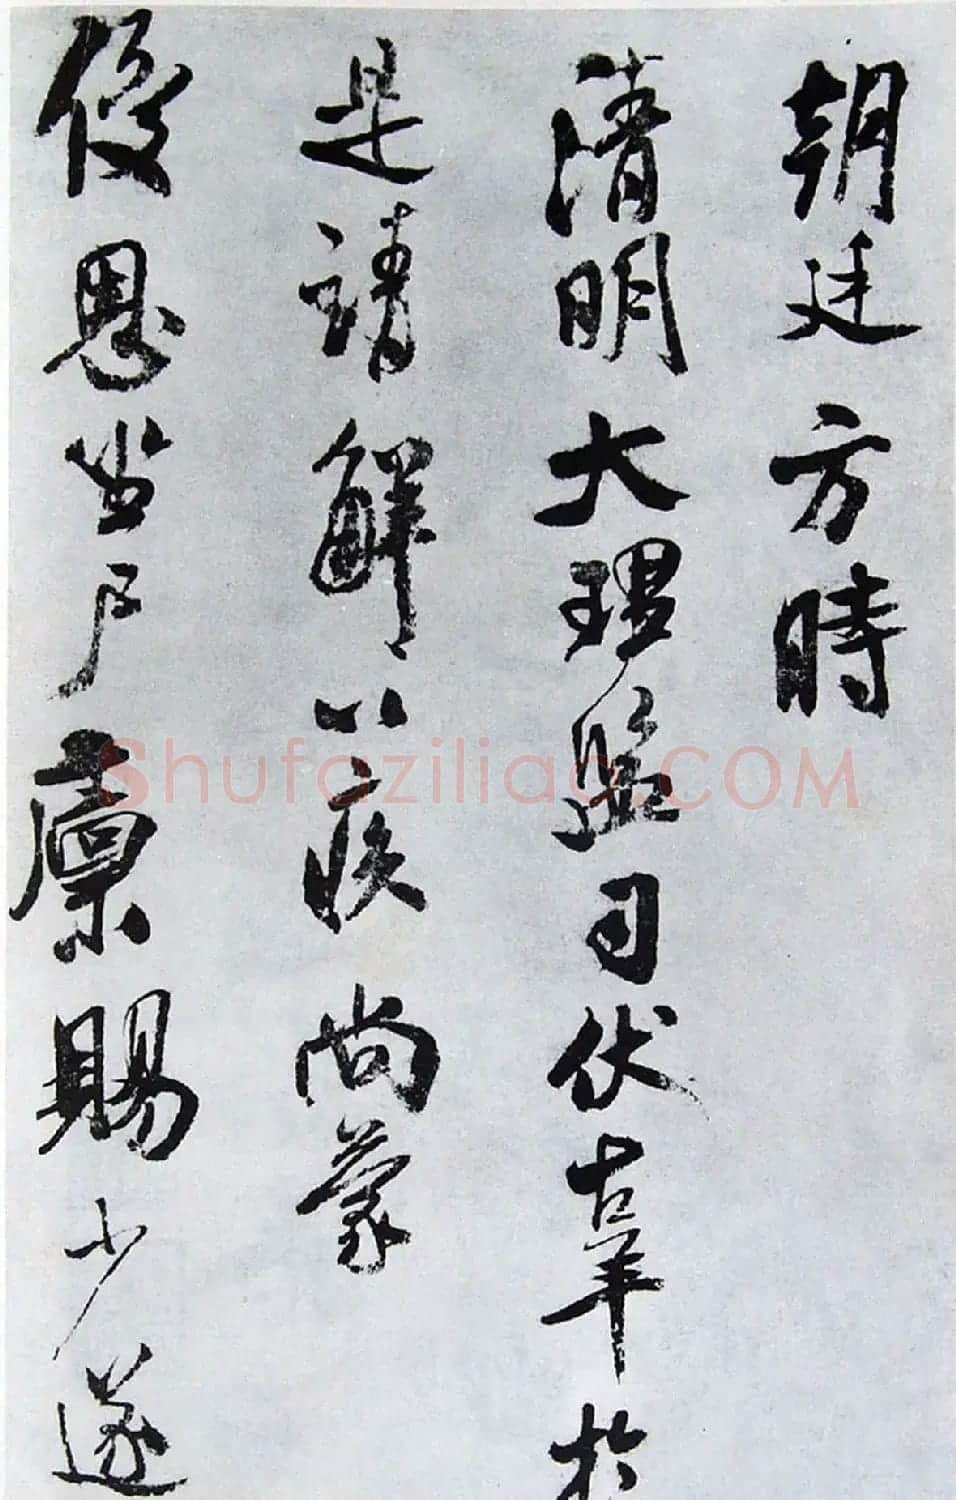 朝廷方時
清明大理監司伏辜於
是請解以疾尚蒙
優恩坐尸廩賜少遂
Shufaziliao.COM